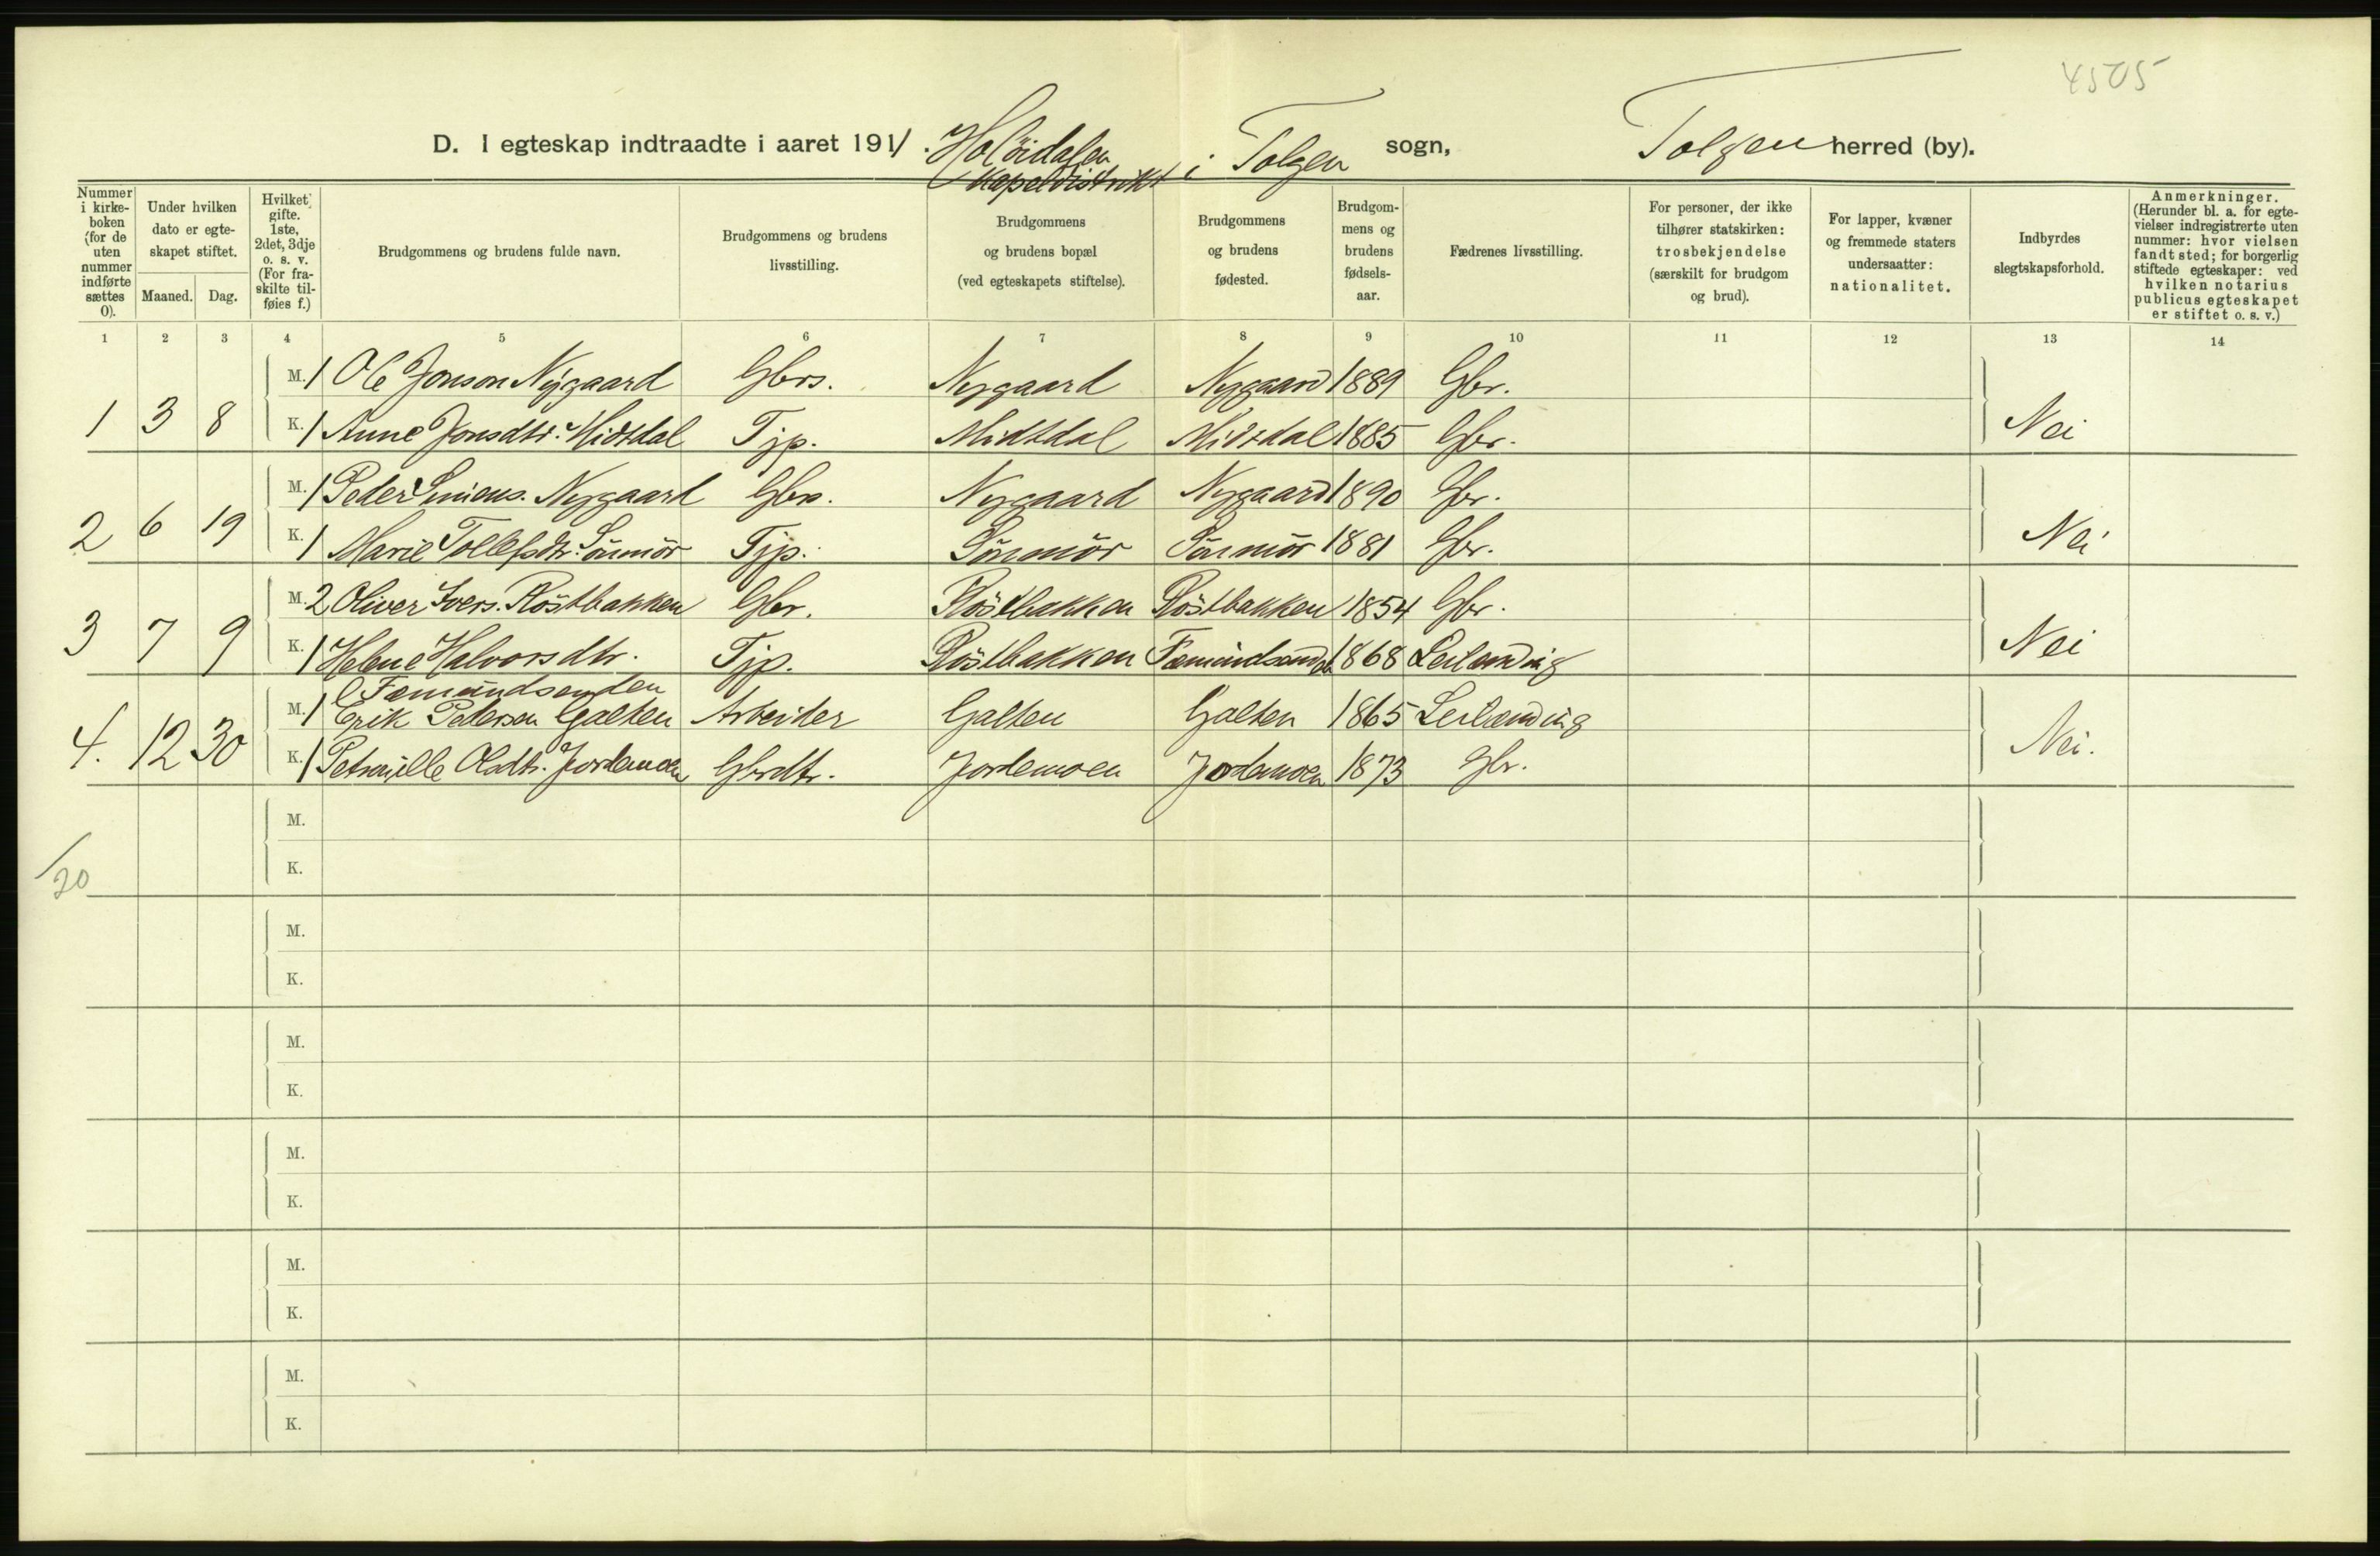 4505
D. I egteskap indtraadte i aaret 1911. Holöidalen Kapeldistrikt i Tolgen sogn, Tolgen herred (by).
Nummer i kirke-boken (for de uten nummer indførte sættes 0).
Under hvilken dato er egte-skapet stiftet.
Maaned. Dag.
Hvilket gifte. 1ste, 2det, 3dje o. s. v. (For fra-skilte til-føies f.)
Brudgommens og brudens fulde navn.
Brudgommens og brudens livsstilling.
Brudgommens og brudens bopæl (ved egteskapets stiftelse).
Brudgommens og brudens fødested.
Brudgom-mens og brudens fødsels-aar.
Fædrenes livsstilling.
For personer, der ikke tilhører statskirken: trosbekjendelse (særskilt for brudgom og brud).
For lapper, kvæner og fremmede staters undersaatter: nationalitet.
Indbyrdes slegtskapsforhold.
Anmerkninger. (Herunder bl. a. for egte-vielser indregistrerte uten nummer: hvor vielsen fandt sted; for borgerlig stiftede egteskaper: ved hvilken notarius publicus egteskapet er stiftet o. s. v.)
1 2 3 4 5 6 7 8 9 10 11 12 13 14
M. 1 Ole Jonson Nygaard Gbrs. Nygaard Nygaard 1889 Gbr.
1 3 8 K. 1 Anne Jonsdtr. Midtdal Tjp. Midtdal Midtdal 1885 Gbr. Nei
M. 1 Peder Simens. Nygaard Gbrs. Nygaard Nygaard 1890 Gbr.
2 6 19 K. 1 Marie Tollefsdtr. Sönmör Tjp. Sönmör Sönmör 1881 Gbr. Nei
M. 2 Oliver Ivers. Röstbakken Gbr. Röstbakken Röstbakken 1854 Gbr.
3 7 9 K. 1 Helene Halvorsdtr. Tjp. Röstbakken Fæmundsenden 1868 Leilænding Nei
Fæmundsenden
M. 1 Erik Pedersen Galten Arbeider Galten Galten 1865 Leilænding
4. 12 30 K. 1 Petronille Olsdtr. Jordemoen Gbrdtr. Jordemoen Jordemoen 1873 Gbr. Nei.
M.
K.
/20
M.
K.
M.
K.
M.
K.
M.
K.
M.
K.